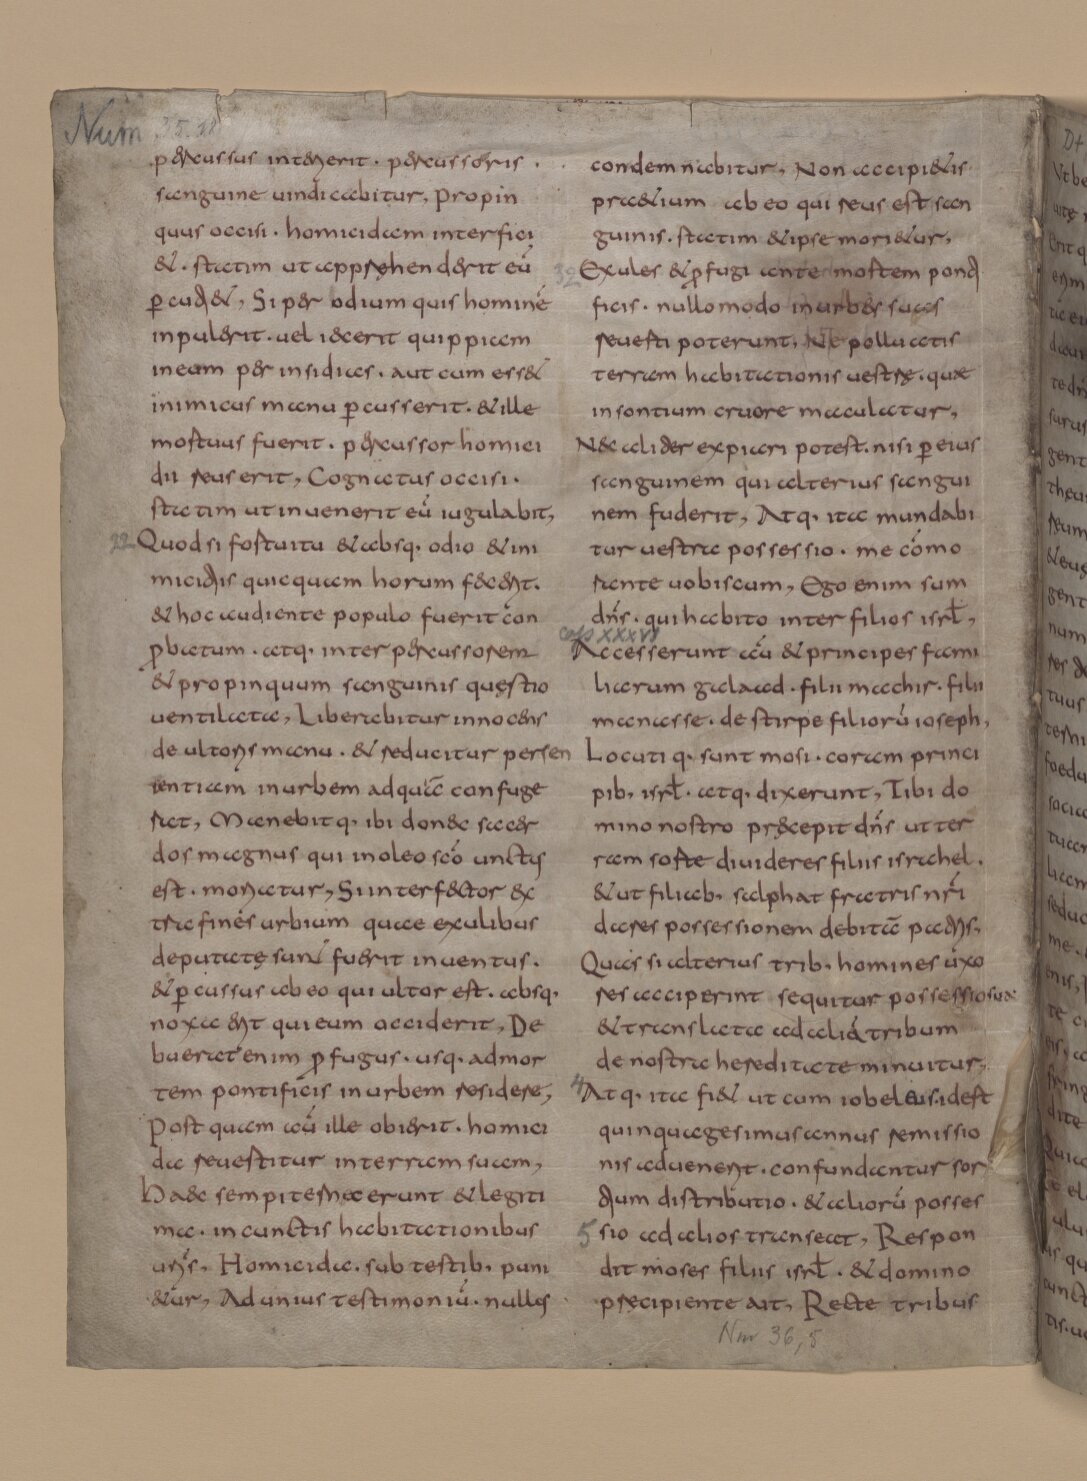 Num 35.18
percussus interierit · percussoris ·
sanguine uindicabitur, Propin
quus occisi · homicidam interfici
et · statim ut apprehenderit eũ
ꝑcutiet, Si per odium quis hominẽ
inpulerit · uel iecerit quippiam
in eum per insidias · aut cum esset
inimicus manu ꝑcusserit · et ille
mortuus fuerit · percussor homici
dii reus erit, Cognatus occisi ·
statim ut inuenerit eũ iugulabit,
22
Quod si fortuitu et absq· odio et ini
micitiis quicquam horum fecerit ·
et hoc audiente populo fuerit con
ꝓbatum · atq· inter percussorem
et propinquum sanguinis quęstio
uentilata, Liberabitur innocens
de ultoris manu · et reducitur per sen
tentiam in urbem ad quã confuge
rat, Manebitq· ibi donec sacer
dos magnus qui in oleo scõ unctus
est · moriatur, Si interfector ex
tra fines urbium quae exulibus
deputatę sunt fuerit inuentus ·
et ꝑcussus ab eo qui ultor est · absq·
noxa erit qui eum occiderit, De
buerat enim ꝓfugus · usq· ad mor
tem pontificis in urbem residere,
Post quam aũ ille obierit · homici
da reuertitur in terram suam,
Haec sempiterna erunt et legiti
ma · in cunctis habitationibus
uris, Homicida · sub testib· puni
etur, Ad unius testimoniũ · nullus
condemnabitur, Non accipietis
praetium ab eo qui reus est san
guinis · statim et ipse morietur,
32
Exules et ꝓfugi ante mortem ponti
ficis · nullo modo in urbes suas
reuerti poterunt, Ne polluatis
terram habitationis uestrę · quae
insontium cruore maculatur,
Nec aliter expiari potest · nisi ꝑ eius
sanguinem qui alterius sangui
nem fuderit, Atq· ita mundabi
tur uestra possessio · me cõmo
rante uobiscum, Ego enim sum
dñs · qui habito inter filios isrl,
cap XXXVI
Accesserunt aũ et principes fami
liarum galaad · filii machir · filii
manasse · de stirpe filiorũ ioseph,
Locutiq· sunt mosi · coram princi
pib· isrl · atq· dixerunt, Tibi do
mino nostro pręcepit dñs ut ter
ram sorte diuideres filiis israhel ·
et ut filiab· salphat fratris nri
dares possessionem debitã patris,
Quas si alterius trib· homines uxo
res acciperint sequitur possessio sua
et translata ad aliã tribum
de nostra hereditate minuitur,
4
Atq· ita fiet ut cum iobeleus · id est
quinquagesimus annus remissio
nis aduenerit · confundantur sor
tium distributio · et aliorũ posses
5
sio ad alios transeat, Respon
dit moses filiis isrl · et domino
pręcipiente ait, Recte tribus
Nm 36,5